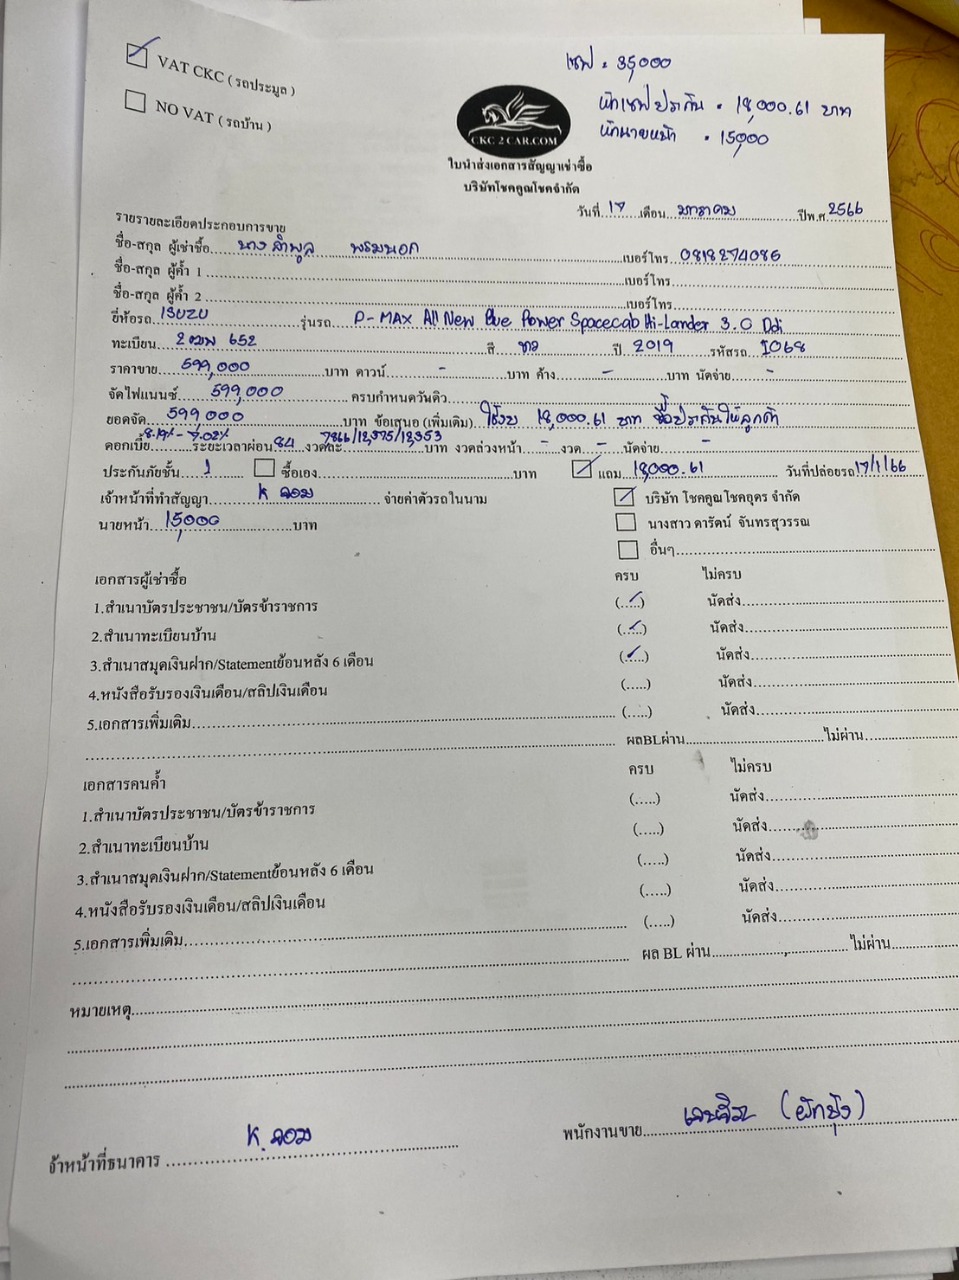 VAT CKC ( รถประมูล )
NO VAT ( รถบ้าน )
เซฟ = 35,000
หักเซฟประกัน = 18,000.61 บาท
หักนายหน้า = 15,000
CKC 2 CAR.COM
ใบนำส่งเอกสารสัญญาเช่าซื้อ
บริษัทโชคคูณโชคจำกัด
วันที่ 17 เดือน มกราคม ปีพ.ศ 2566
รายรายละเอียดประกอบการขาย
ชื่อ-สกุล ผู้เช่าซื้อ นาง ลำพูล พรมนอก เบอร์โทร 0818274086
ชื่อ-สกุล ผู้ค้ำ 1 เบอร์โทร
ชื่อ-สกุล ผู้ค้ำ 2 เบอร์โทร
ยี่ห้อรถ ISUZU รุ่นรถ D-MAX All New Blue Power Spacecab Hi-Lander 3.0 Ddi
ทะเบียน 2ฒพ 652 สี ขาว ปี 2019 รหัสรถ I068
ราคาขาย 599,000 บาท ดาวน์ - บาท ค้าง - บาท นัดจ่าย -
จัดไฟแนนซ์ 599,000 ครบกำหนดวันดิว
ยอดจัด 599,000 บาท ข้อเสนอ (เพิ่มเติม) ใช้งบ 18,000.61 บาท ซื้อประกันให้ลูกค้า
ดอกเบี้ย 8.19% - 7.02% ระยะเวลาผ่อน 84 งวดละ /12,375/12,353 บาท งวดล่วงหน้า - งวด - นัดจ่าย -
ประกันภัยชั้น 1 ซื้อเอง บาท แถม 18,000.61 วันที่ปล่อยรถ 17/1/66
เจ้าหน้าที่ทำสัญญา K จอม จ่ายค่าตัวรถในนาม บริษัท โชคคูณโชคอุดร จำกัด
นายหน้า 15,000 บาท นางสาว ดารัตน์ จันทรสุวรรณ
อื่นๆ
เอกสารผู้เช่าซื้อ ครบ ไม่ครบ
1.สำเนาบัตรประชาชน/บัตรข้าราชการ (.....) นัดส่ง
2.สำเนาทะเบียนบ้าน (.....) นัดส่ง
3.สำเนาสมุดเงินฝาก/Statementย้อนหลัง 6 เดือน (.....) นัดส่ง
4.หนังสือรับรองเงินเดือน/สลิปเงินเดือน (.....) นัดส่ง
5.เอกสารเพิ่มเติม (.....) นัดส่ง
ผลBLผ่าน ไม่ผ่าน
เอกสารคนค้ำ ครบ ไม่ครบ
1.สำเนาบัตรประชาชน/บัตรข้าราชการ (.....) นัดส่ง
2.สำเนาทะเบียนบ้าน (.....) นัดส่ง
3.สำเนาสมุดเงินฝาก/Statementย้อนหลัง 6 เดือน (.....) นัดส่ง
4.หนังสือรับรองเงินเดือน/สลิปเงินเดือน (.....) นัดส่ง
5.เอกสารเพิ่มเติม (.....) นัดส่ง
ผล BL ผ่าน ไม่ผ่าน
หมายเหตุ
จ้าหน้าที่ธนาคาร K. จอม พนักงานขาย